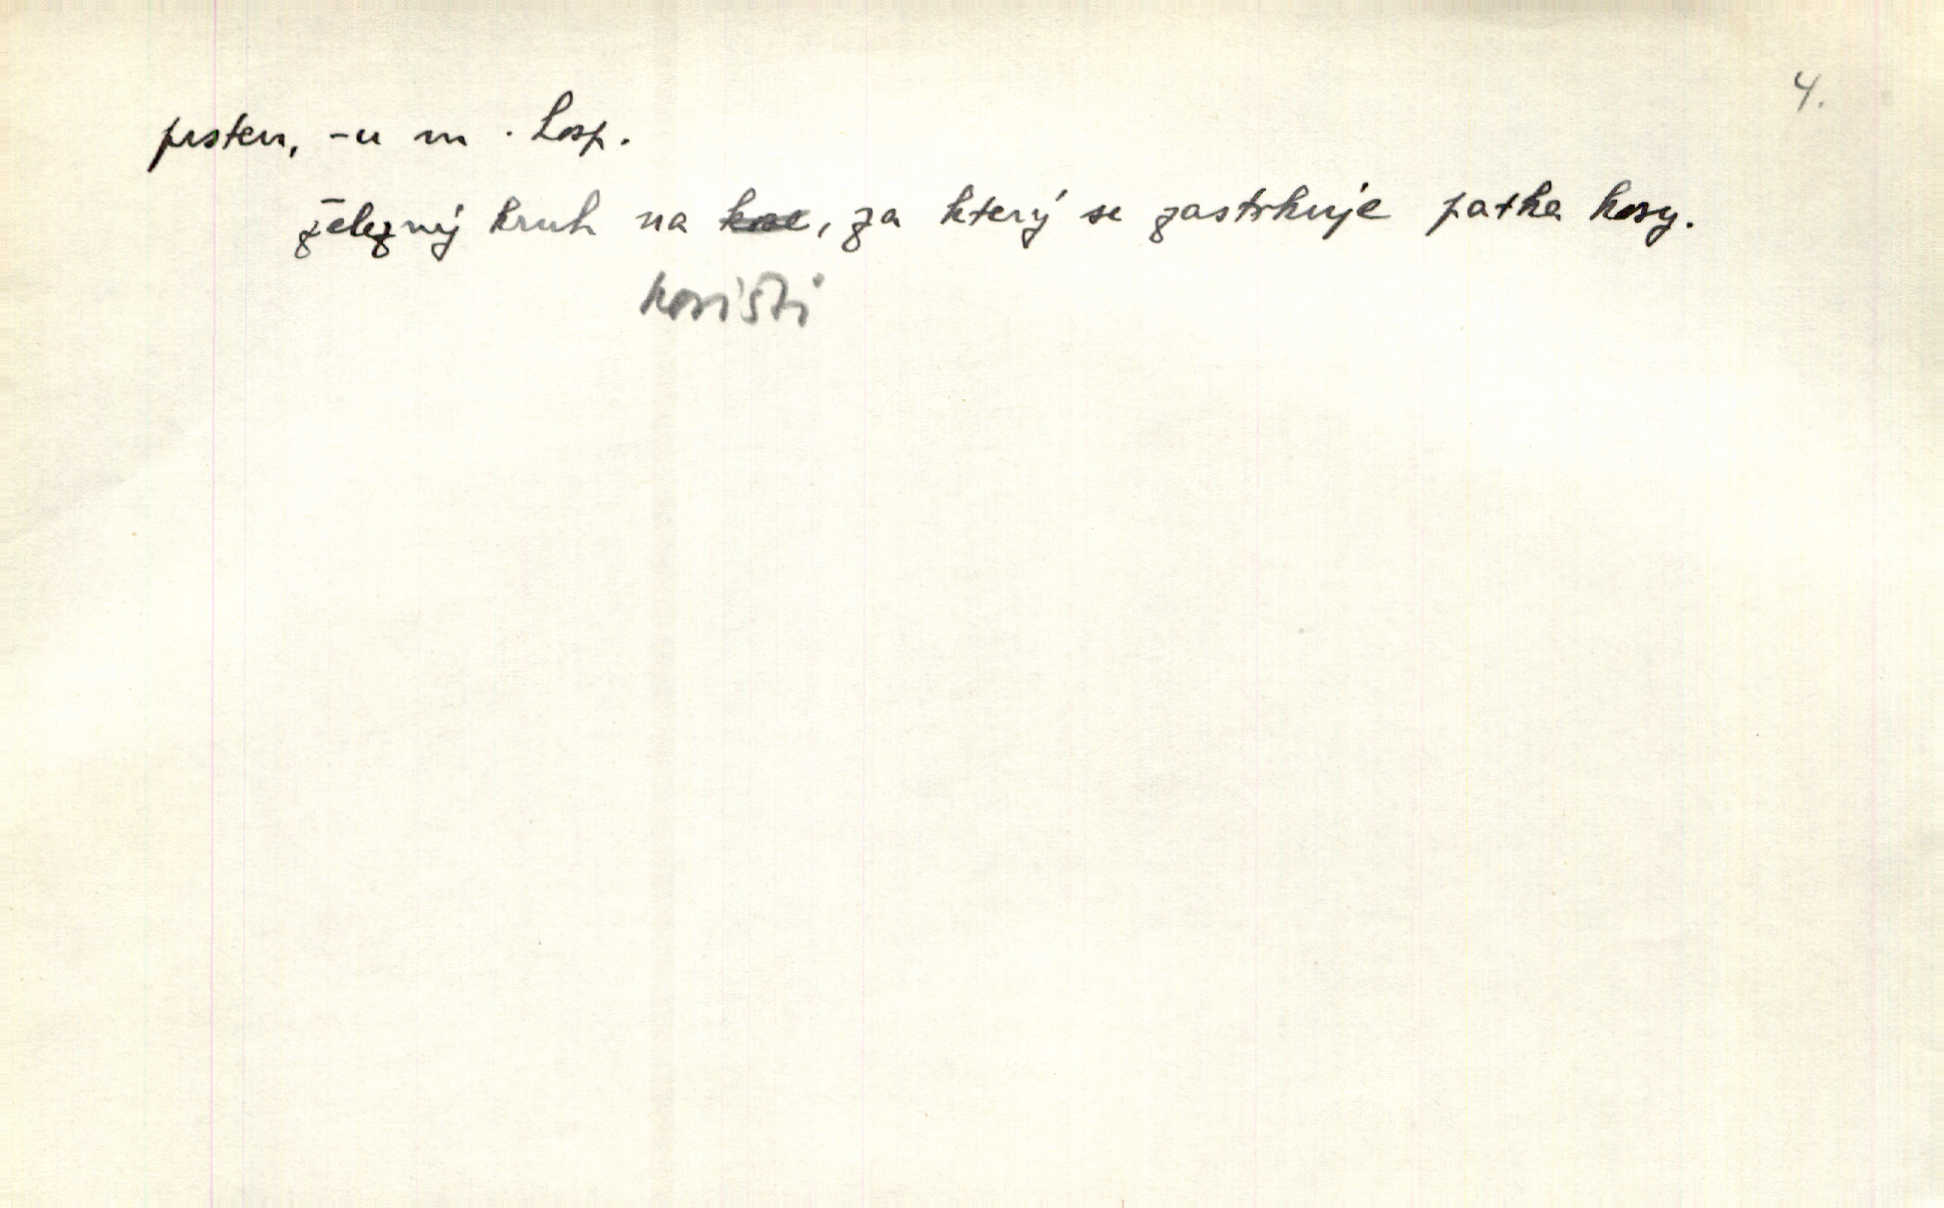 4.
prsten, -u m. Losp.
železný kruh na kose, za který se zastrkuje patka kosy.
kosišti